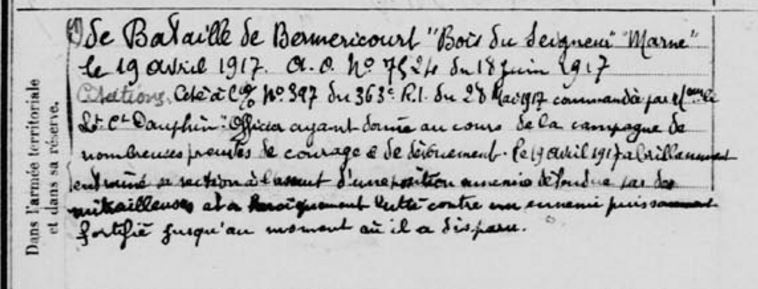 (1) de Bataille de Bermericourt "Bois du Seigneur" Marne"
le 19 avril 1917. A. O. No 7524 du 18 juin 1917
Citations. Cité à l'O/ No 397 du 363e R.I. du 28 Mai 1917 commandé par le
Lt Cl Dauphin: Officier ayant donné au cours de la campagne de
nombreuses preuves de courage & de dévouement. Le 19 avril 1917 a brillamment
entrainé sa section à l'assaut d'une position ennemie défendue par des
mitrailleuses et a héroïquement lutté contre un ennemi puissamment
fortifié jusqu'au moment où il a disparu.
Dans l'armée territoriale
et dans sa réserve.